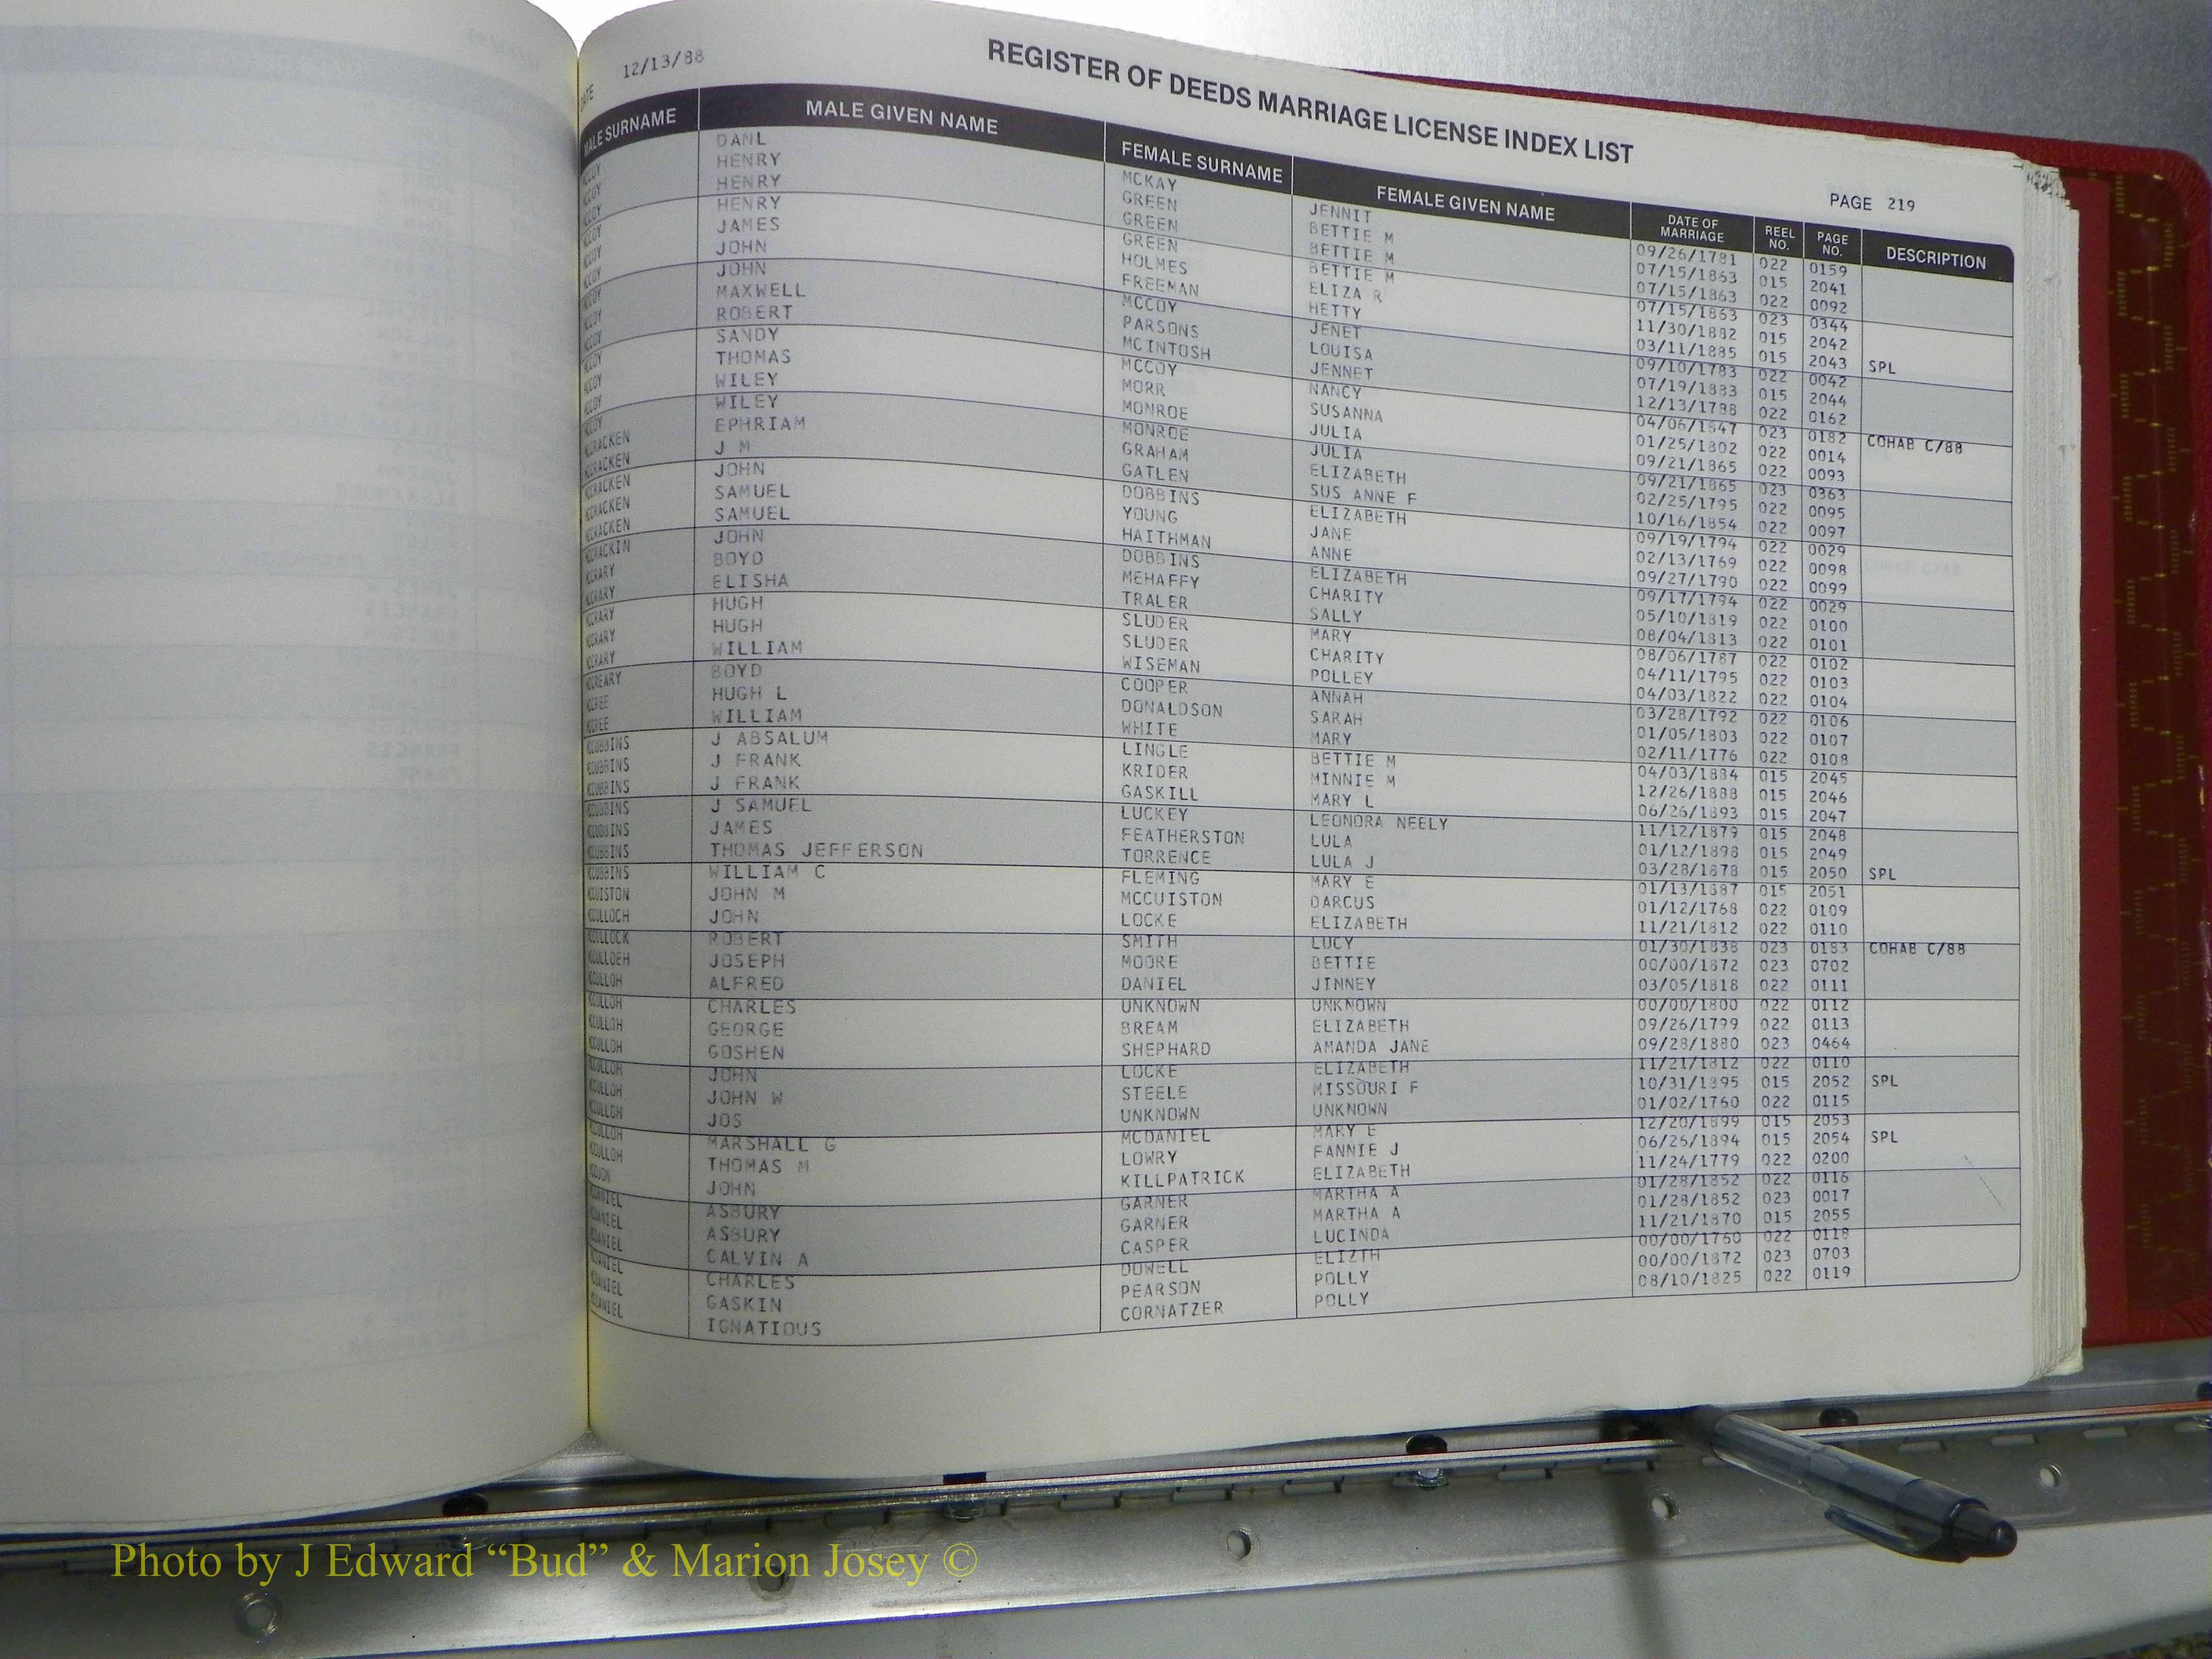 DATE 12/13/88
REGISTER OF DEEDS MARRIAGE LICENSE INDEX LIST
PAGE 219
MALE SURNAME MALE GIVEN NAME FEMALE SURNAME FEMALE GIVEN NAME DATE OF MARRIAGE REEL NO. PAGE NO. DESCRIPTION
MCCOY DANL MCKAY JENNIT 09/26/1781 022 0159
MCCOY HENRY GREEN BETTIE M 07/15/1863 015 2041
MCCOY HENRY GREEN BETTIE M 07/15/1863 022 0092
MCCOY HENRY GREEN BETTIE M 07/15/1863 023 0344
MCCOY JAMES HOLMES ELIZA R 11/30/1882 015 2042
MCCOY JOHN FREEMAN HETTY 03/11/1885 015 2043 SPL
MCCOY JOHN MCCOY JENET 09/10/1783 022 0042
MCCOY MAXWELL PARSONS LOUISA 07/19/1883 015 2044
MCCOY ROBERT MCINTOSH JENNET 12/13/1788 022 0162
MCCOY SANDY MCCOY NANCY 04/06/1847 023 0182 COHAB C/88
MCCOY THOMAS MORR SUSANNA 01/25/1802 022 0014
MCCOY WILEY MONROE JULIA 09/21/1865 022 0093
MCCOY WILEY MONROE JULIA 09/21/1865 023 0363
MCCRACKEN EPHRIAM GRAHAM ELIZABETH 02/25/1795 022 0095
MCCRACKEN J M GATLEN SUS ANNE F 10/16/1854 022 0097
MCCRACKEN JOHN DOBBINS ELIZABETH 09/19/1794 022 0029
MCCRACKEN SAMUEL YOUNG JANE 02/13/1769 022 0098
MCCRACKEN SAMUEL HAITHMAN ANNE 09/27/1790 022 0099
MCCRACKIN JOHN DOBBINS ELIZABETH 09/17/1794 022 0029
MCCRARY BOYD MEHAFFY CHARITY 05/10/1819 022 0100
MCCRARY ELISHA TRALER SALLY 08/04/1813 022 0101
MCCRARY HUGH SLUDER MARY 08/06/1787 022 0102
MCCRARY HUGH SLUDER CHARITY 04/11/1795 022 0103
MCCRARY WILLIAM WISEMAN POLLEY 04/03/1822 022 0104
MCCREARY BOYD COOPER ANNAH 03/28/1792 022 0106
MCCREE HUGH L DONALDSON SARAH 01/05/1803 022 0107
MCCREE WILLIAM WHITE MARY 02/11/1776 022 0108
MCCUBBINS J ABSALUM LINGLE BETTIE M 04/03/1884 015 2045
MCCUBBINS J FRANK KRIDER MINNIE M 12/26/1888 015 2046
MCCUBBINS J FRANK GASKILL MARY L 06/26/1893 015 2047
MCCUBBINS J SAMUEL LUCKEY LEONORA NEELY 11/12/1879 015 2048
MCCUBBINS JAMES FEATHERSTON LULA 01/12/1898 015 2049
MCCUBBINS THOMAS JEFFERSON TORRENCE LULA J 03/28/1878 015 2050 SPL
MCCUBBINS WILLIAM C FLEMING MARY E 01/13/1887 015 2051
MCCUISTON JOHN M MCCUISTON DARCUS 01/12/1768 022 0109
MCCULLOCH JOHN LOCKE ELIZABETH 11/21/1812 022 0110
MCCULLOCK ROBERT SMITH LUCY 01/30/1838 023 0183 COHAB C/88
MCCULLOEH JOSEPH MOORE BETTIE 00/00/1872 023 0702
MCCULLOH ALFRED DANIEL JINNEY 03/05/1818 022 0111
MCCULLOH CHARLES UNKNOWN UNKNOWN 00/00/1800 022 0112
MCCULLOH GEORGE BREAM ELIZABETH 09/26/1799 022 0113
MCCULLOH GOSHEN SHEPHARD AMANDA JANE 09/28/1880 023 0464
MCCULLOH JOHN LOCKE ELIZABETH 11/21/1812 022 0110
MCCULLOH JOHN W STEELE MISSOURI F 10/31/1895 015 2052 SPL
MCCULLOH JOS UNKNOWN UNKNOWN 01/02/1760 022 0115
MCCULLOH MARSHALL G MCDANIEL MARY E 12/20/1899 015 2053
MCCULLOH THOMAS M LOWRY FANNIE J 06/26/1894 015 2054 SPL
JOHN KILLPATRICK ELIZABETH 11/24/1779 022 0200
MCDANIEL ASBURY GARNER MARTHA A 01/28/1852 022 0116
MCDANIEL ASBURY GARNER MARTHA A 01/28/1852 023 0017
MCDANIEL CALVIN A CASPER LUCINDA 11/21/1870 015 2055
MCDANIEL CHARLES DOWELL ELIZTH 00/00/1760 022 0118
MCDANIEL GASKIN PEARSON POLLY 00/00/1872 023 0703
MCDANIEL IGNATIOUS CORNATZER POLLY 08/10/1825 022 0119
Photo by J Edward “Bud” & Marion Josey ©